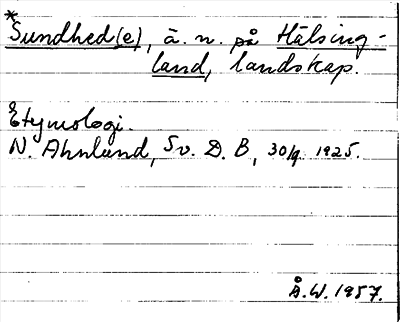 *Sundhed(e), ä. n. på Hälsing-
land, landskap.
Etymologi.
N. Ahnlund, Sv. D. B, 30/9 1925.
Å.W. 1957.